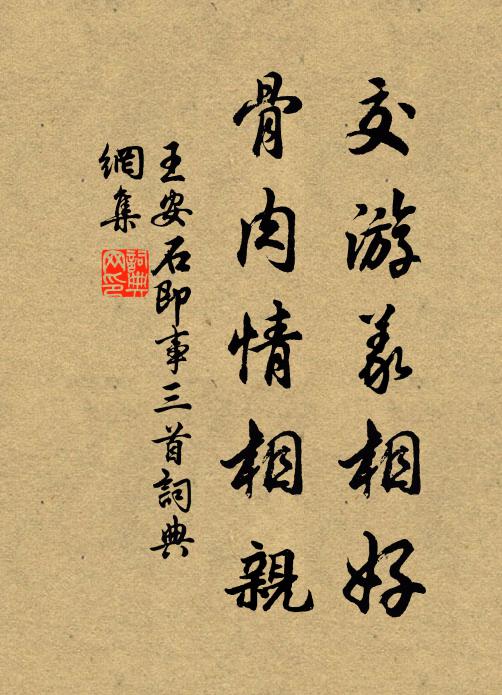 交游義相好
骨肉情相親
王安石即事三首詞典
網集
詞典
网印